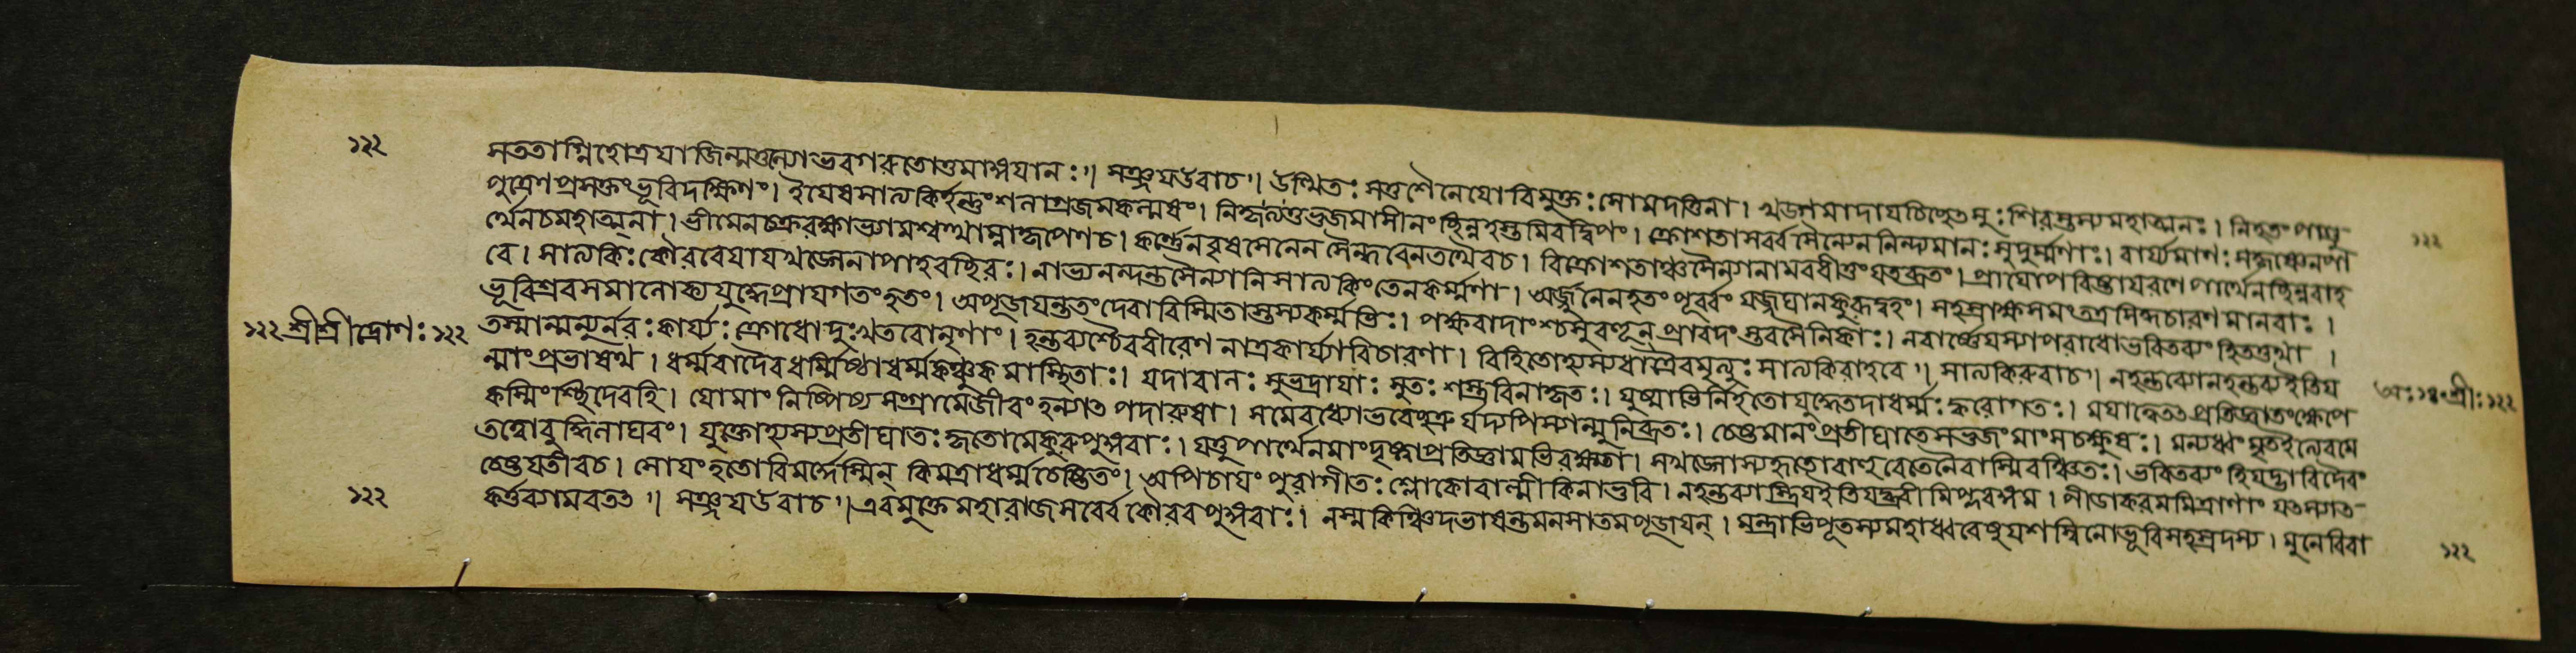 ১২২ সততাগ্নিহোত্রযাজিন্মত্তুল্যোভবগরুতোত্তমাঙ্গযানঃ৷৷ সঞ্জযউবাচ৷৷ উত্থিতঃ সতুশৈনেযোবিমুক্তঃ সোমদত্তিনা। খড্গমাদাযচিচ্ছেৎসুঃশিরস্তস্যমহাত্মনঃ। নিহতংপাণ্ডু
পুত্রেণপ্রসক্তংভূরিদক্ষিণং। ইযেষসাত্যকির্হন্তুংশলাগ্রজমকল্মষং। নিকৃত্তভুজমাসীনংছিন্নহস্তমিবদ্বিপং। ক্রোশতাংসর্ব্বসৈন্যেননিন্দ্যমানঃসুদুর্ম্মণাঃ। বার্য্যমাণঃসকৃষ্ণেনপা ১২২
র্থেনচমহাত্মনা। ভীমেনচক্ররক্ষাভ্যামশ্বত্থাম্নাকৃপেণচ। কর্ণেনবৃষসেনেনসৈন্ধবেনতথৈবচ। বিক্রোশতাঞ্চসৈন্যানামবধীত্তংযতব্রতং। প্রাযোপবিষ্টাযরণেপার্থেনচ্ছিন্নবাহ
বে। সাত্যকিঃকৌরবেযাযখড্গেনাপাহরচ্ছিরঃ। নাভ্যনন্দন্তসৈন্যানিসাত্যকিংতেনকর্ম্মণা। অর্জ্জুনেনহতংপূর্ব্বংযজ্জঘানকুরূদ্বহং। সহস্রাক্ষসমংতত্রসিদ্ধচারণমানবাঃ।
ভূরিশ্রবসমালোক্যযুদ্ধেপ্রাযগতংহতং। অপূজযন্ততংদেবাবিস্মিতাস্তস্যকর্ম্মভিঃ। পক্ষবাদাংশ্চসুবহূন্প্রাবদংস্তবসৈনিকাঃ। নবার্ষ্ণেযস্যাপরাধোভবিতব্যংহিতত্তথা।
১২২ শ্রীশ্রীদ্রোণঃ১২২ তস্মান্মন্যুর্নরঃকার্য্যঃক্রোধোদুঃখতরোনৃণাং। হন্তব্যশ্চৈববীরেণনাত্রকার্য্যাবিচারণা। বিহিতোহ্যস্যধাত্রৈবমৃত্যুঃসাত্যকিরাহবে৷৷ সাত্যকিরুবাচ৷৷ নহন্তব্যোনহন্তব্যইতিয
ন্মাংপ্রভাষথ। ধর্ম্মবাদৈরধর্ম্মিষ্ঠাধর্ম্মকঞ্চুকমাস্থিতাঃ। যদাবালঃসুভদ্রাযাঃসুতঃশস্ত্রবিনাকৃতঃ। যুষ্মাভির্নিহতোযুদ্ধেতদাধর্ম্মঃক্বরোগতঃ। মযাত্বেতৎপ্রতিজ্ঞাতংক্ষেপে অঃ১৪ংশ্রীঃ১২২
কস্মিংশ্চিদেবহি। যোমাংনিষ্পিষ্যসংগ্রামেজীবংহন্যাৎপদারুষা। সমেবধ্যোভবেচ্ছত্রুর্যদ্যপিস্যান্মুনিব্রতঃ। চেষ্টমানংপ্রতীঘাতেসভুজংমাংসচক্ষুষঃ। মন্যধ্বংমৃতইত্যেবমে
তদ্বোবুদ্ধিলাঘবং। যুক্তোহ্যস্যপ্রতীঘাতঃকৃতোমেকুরুপুঙ্গবাঃ। যত্তুপার্থেনমাংদৃষ্ট্বাপ্রতিজ্ঞামভিরক্ষতা। সখড্গোস্যহৃতোবাহুরেতেনৈবাস্মিবঞ্চিতঃ। ভবিতব্যংহিযদ্ভাবিদৈবং
চেষ্টযতীবচ। সোযংহতোবিমর্দ্দেস্মিন্ কিমত্রাধর্ম্মচেষ্টিতং। অপিচাযংপুরাগীতঃশ্লোকোবাল্মীকিনাভুবি। নহন্তব্যাস্ত্রিযইতিযদ্ব্রবীষিপ্লবঙ্গম। পীডাকরমমিত্রাণাং যৎস্যাৎ
১২২ কর্ত্তব্যমেবতৎ৷৷ সঞ্জযউবাচ৷৷এবমুক্তেমহারাজসর্ব্বেকৌরবপুঙ্গবাঃ। নস্মকিঞ্চিদভাষন্তমনসাতমপূজযন্। মন্ত্রাভিপূতস্যমহাধ্বরেষুযশস্বিনোভূরিসহস্রদস্য। মুনেরিবা ১২২